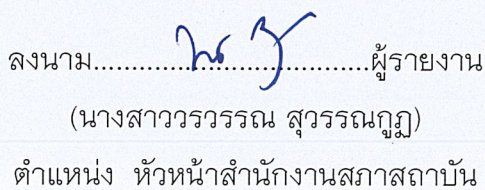 ลงนาม..................................ผู้รายงาน
(นางสาววรวรรณ สุวรรณกูฏ)
ตำแหน่ง หัวหน้าสำนักงานสภาสถาบัน